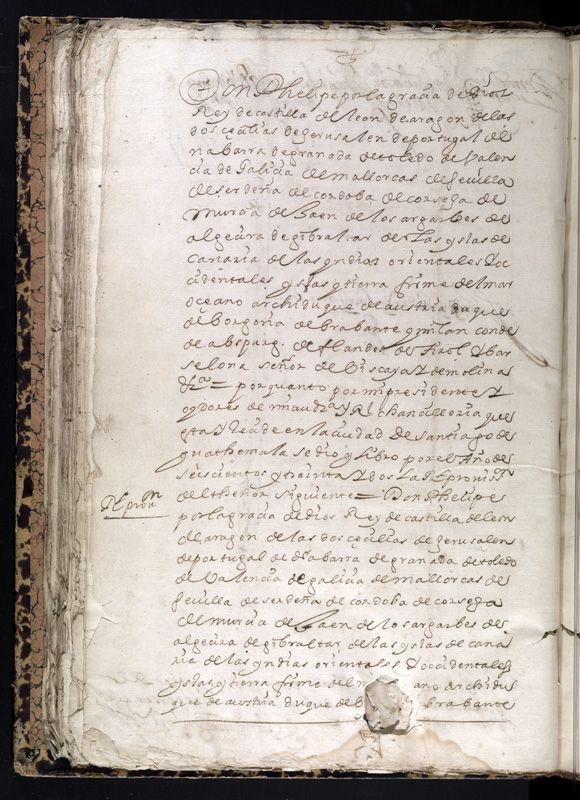 Don Phelipe por la gracia de Dios
Rey de castilla de leon de aragon de las
dos çeçilias de gerusalen de portugal de
nabarra de granada de toledo de Valen
cia de Galicia de mallorcas de seuilla
de serdeña de cordoba de corsega de
murcia de Jaen de los argarbes de
algeçira de gibraltar de las yslas de
canaria de las yndias orientales Y oc
cidentales yslas y tierra firme del mar
oçeano archiduque de austria duque
de borgoña de brabante y milan conde
de abspurg. de flandes de tirol Y bar
selona señor de Biscaya Y de molina
&ca = por quanto por mi presidente Y
oydores de mi audia y Rl chançilleria que
esta y reside en la ciudad de santiago de
guathemala se dio y libro por el Año de
seiscientos y treinta Y dos La Rl prouissn
del thenor siguiente = Don Phelipe
Rl proun
por la gracia de dios Rey de castilla de leon
de aragon de las dos çeçilias de gerusalen
de portugal de nabarra de granada de toledo
de Valencia de galicia de mallorcas de
seuilla de serdeña de cordoba de corsega
de murcia de Jaen de los argarbes de
algeçira de gibraltar de las yslas de cana
ria de las yndias orientales Y occidentales
yslas y tierra firme del m ano archidu
que de austria duque de b brabante